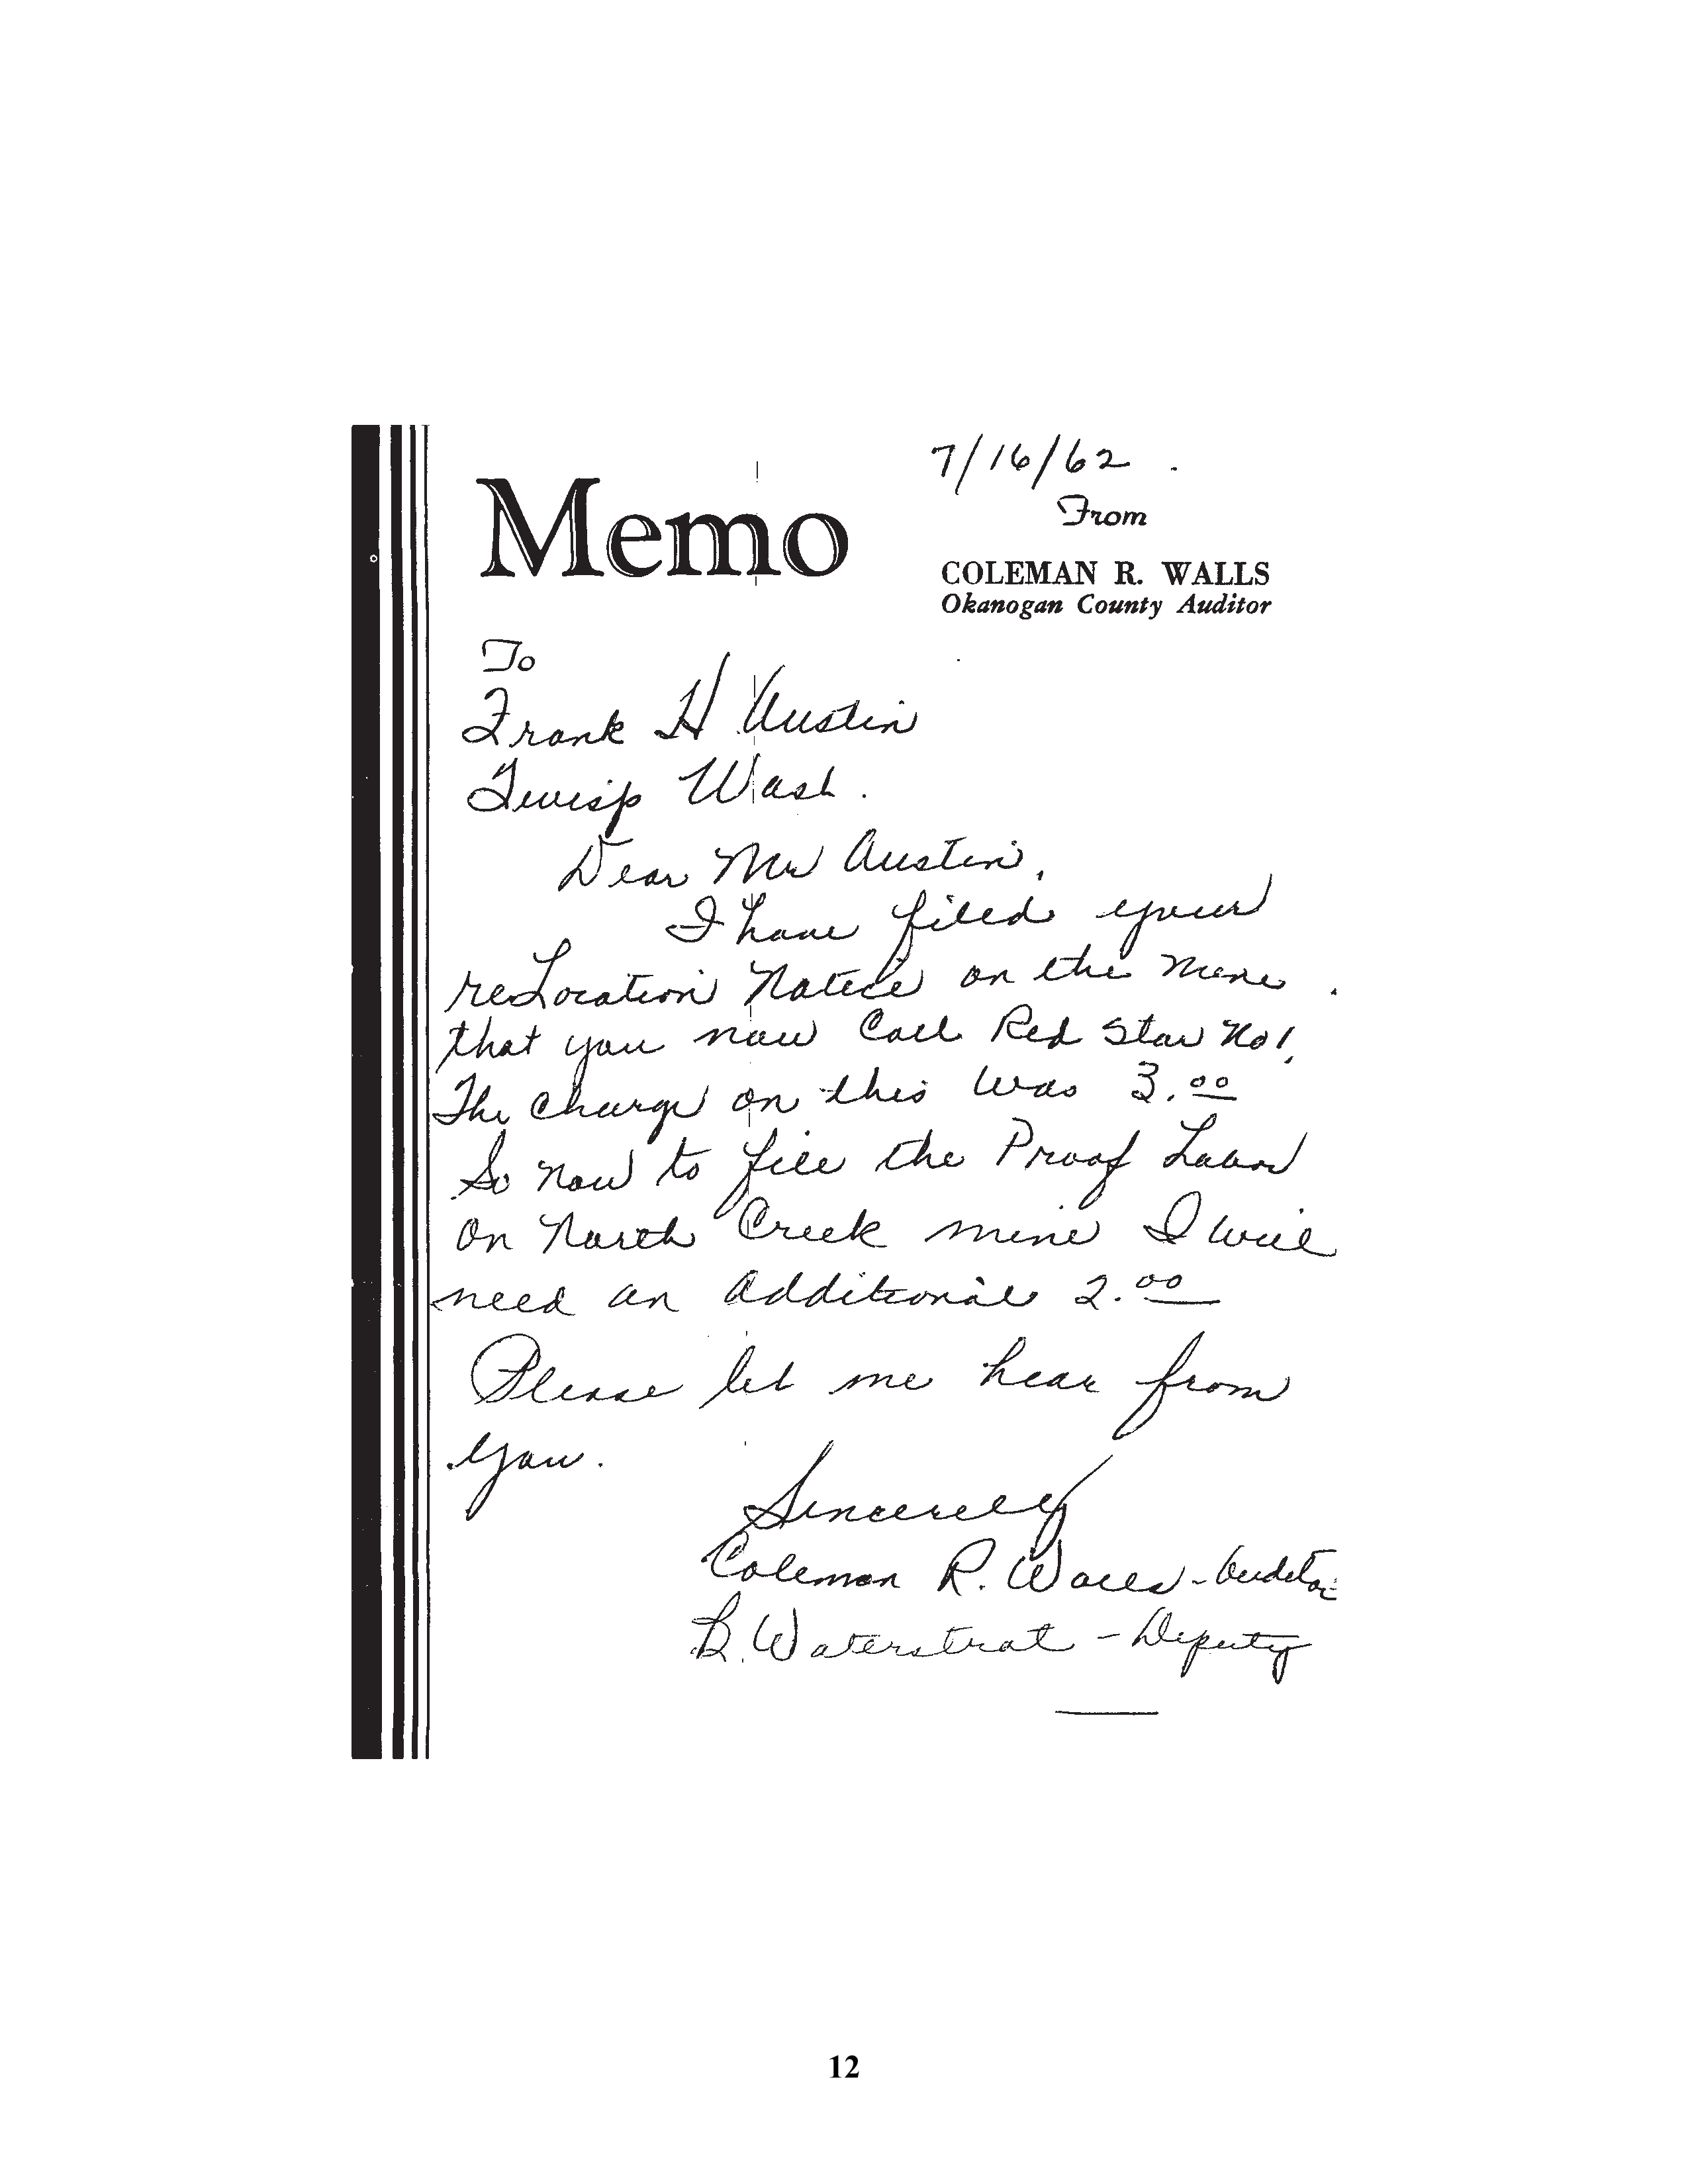 7/16/62 .
Memo
From
COLEMAN R. WALLS
Okanogan County Auditor
To
Frank H Austin
Twisp Wash.
Dear Mr Austin,
I have filed your
reLocation Notice on the mine
that you now Call Red Star No 1.
The Charge on this was 3.00
So now to file the Proof Labor
on North Creek mine I will
need an additional 2.00
Please let me hear from
you.
Sincerely
Coleman R. Walls - Auditor
B. Waterstrat - Deputy
12